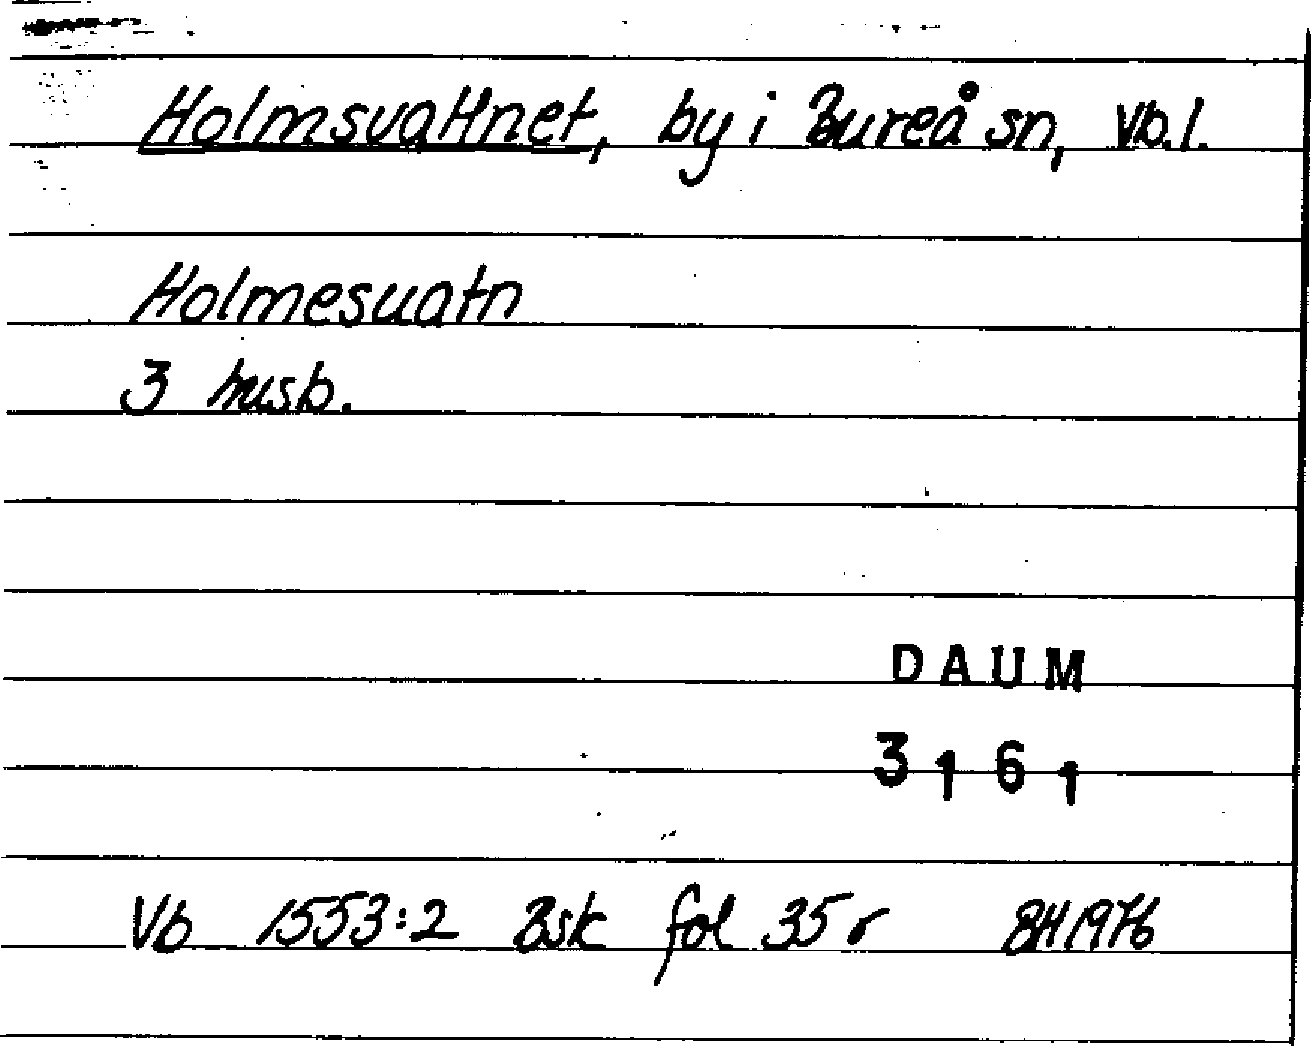 Holmsvattnet, by i Bureå sn, Vb.l.
Holmesuatn
3 husb.
DAUM
3161
Vb 1553:2 Bsk fol 35 r BH 1976